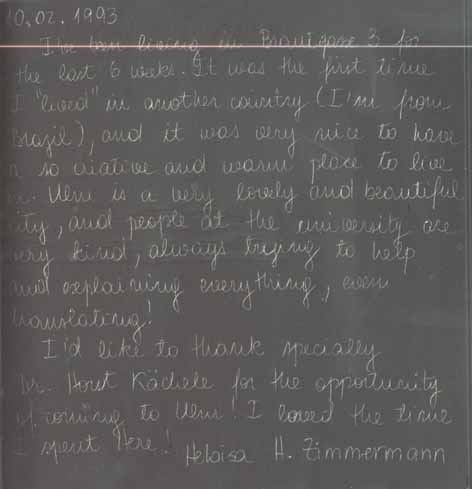 10.02.1993
I've been living in Brautgasse 3 for
the last 6 weeks. It was the first time
I "lived" in another country (I'm from
Brazil), and it was very nice to have
so criative and warm place to live
Ulm is a very lovely and beautiful
ity, and people at the university are
very kind, always trying to help
and explaining everything, even
translating!
I'd like to thank specially
Dr. Horst Kächele for the opportunity
of coming to Ulm! I loved the time
I spent Here! Heloisa H. Zimmermann